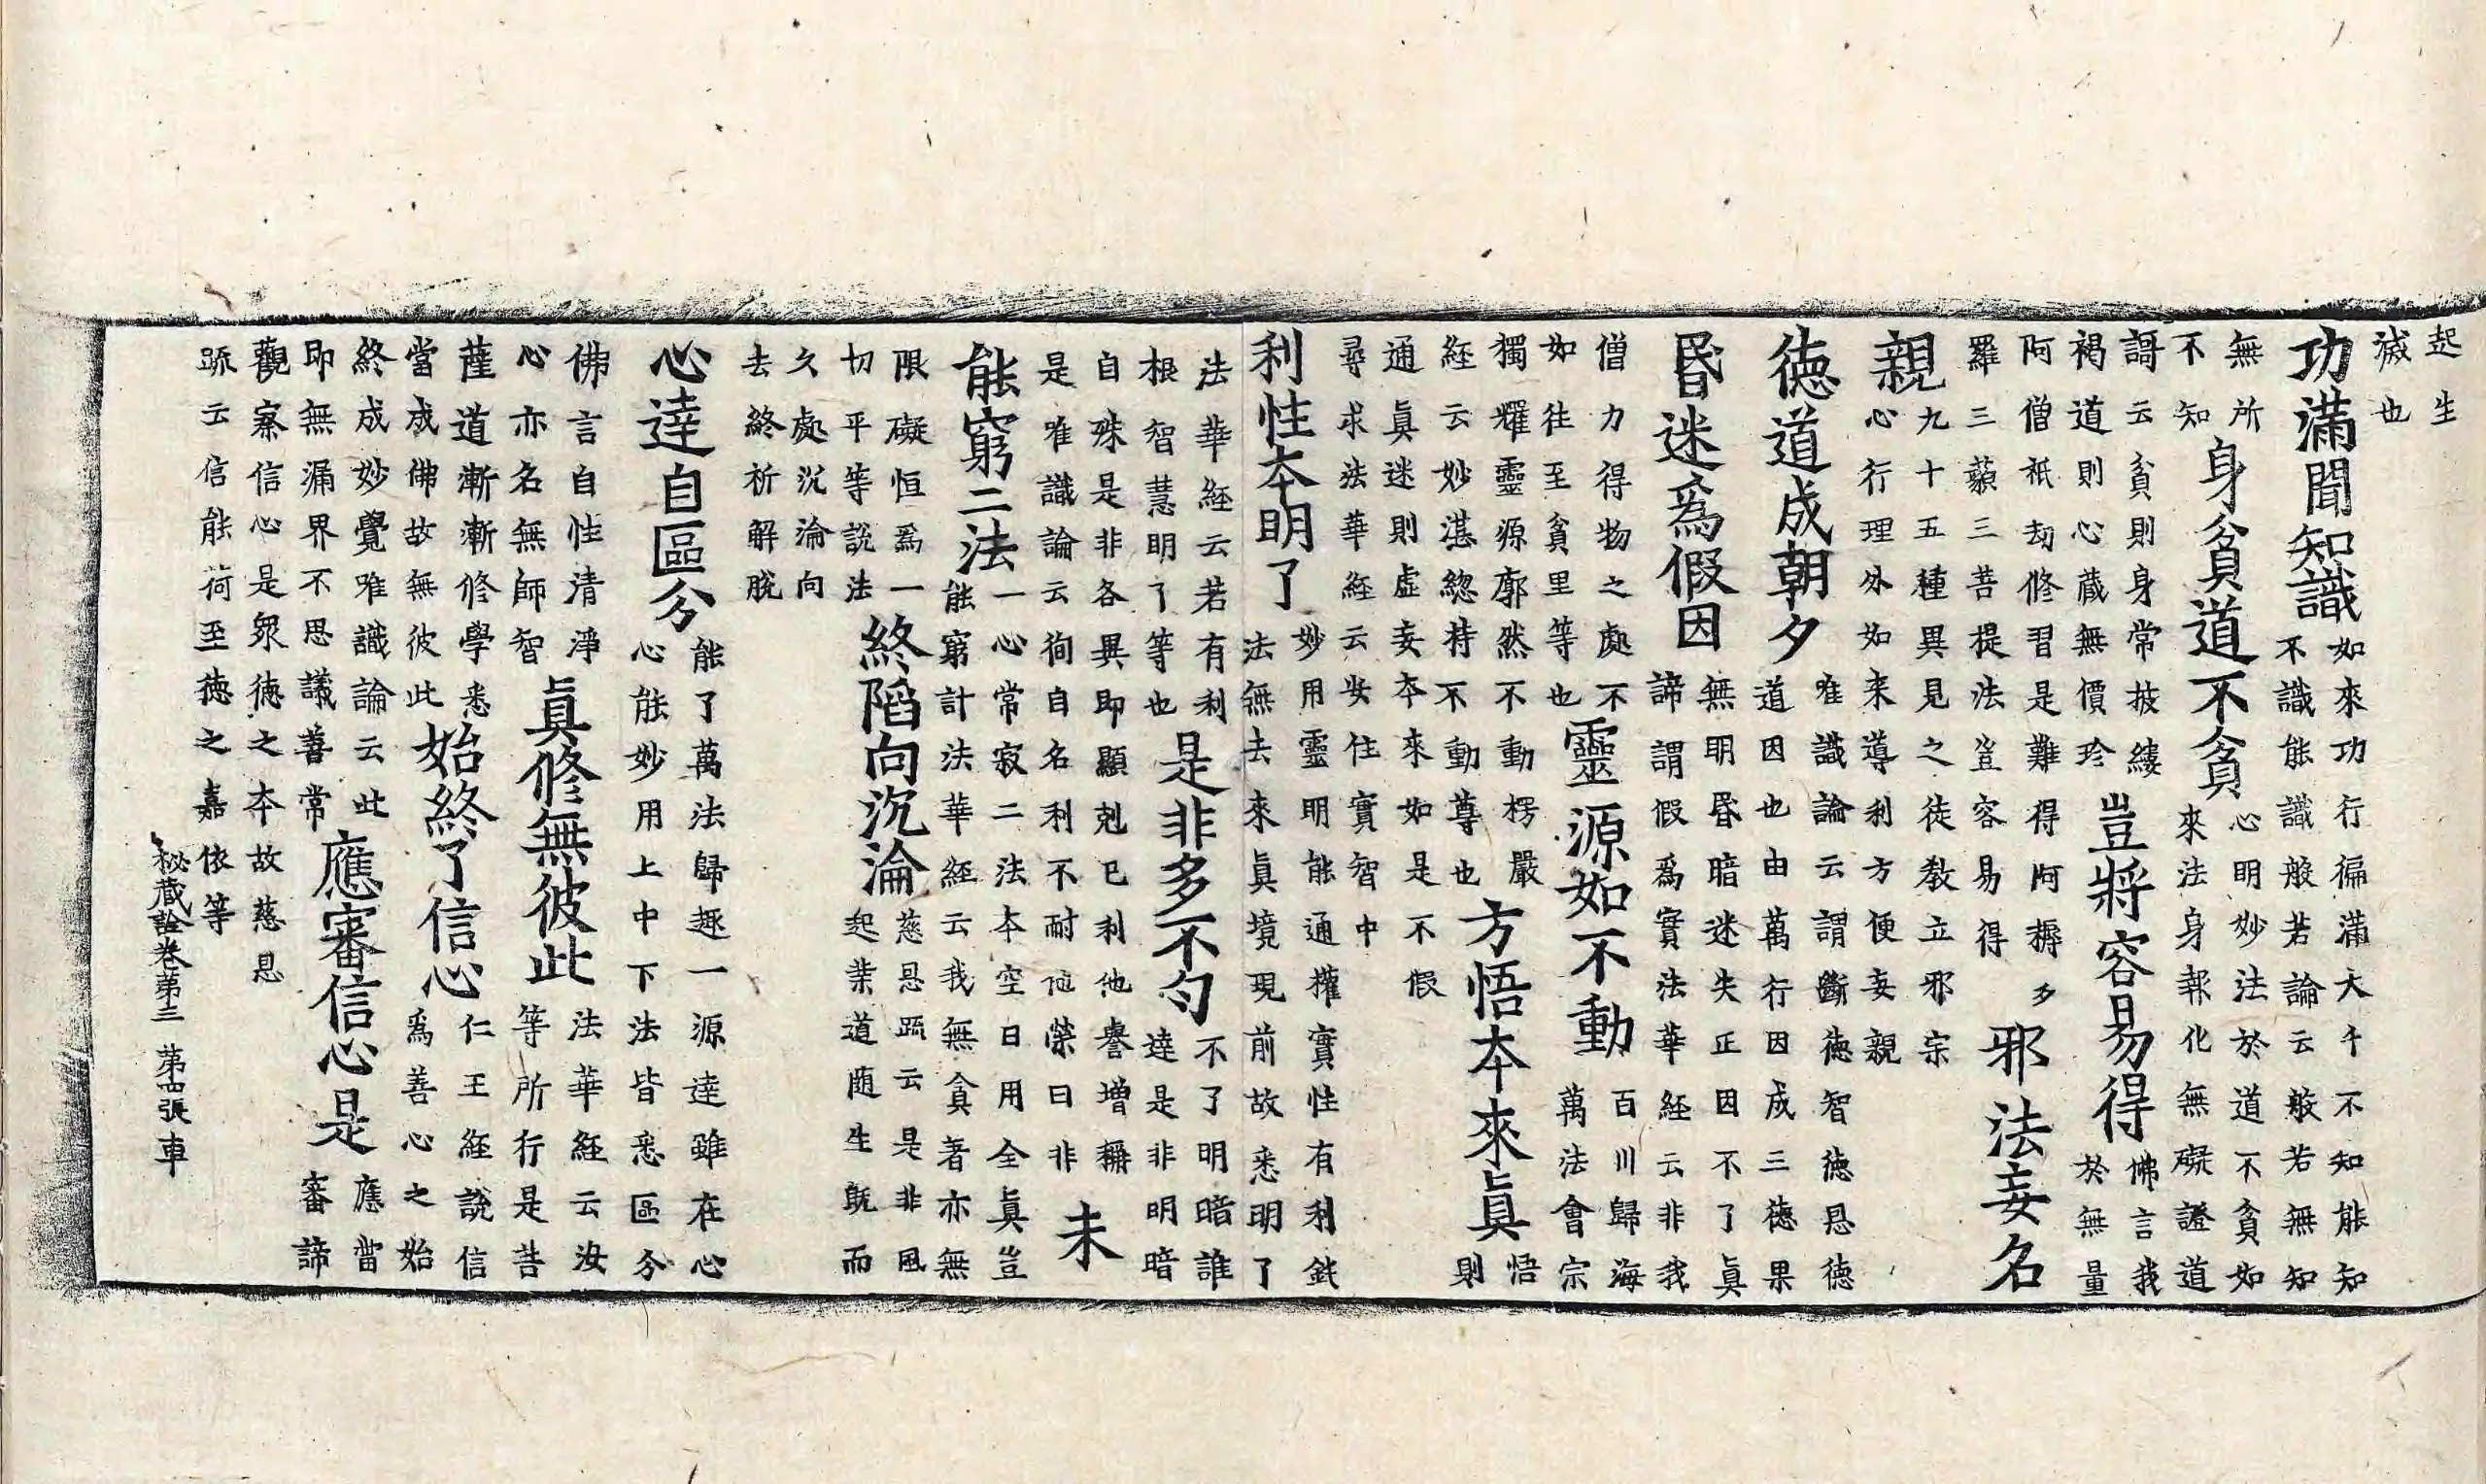 起生
滅也
功滿聞知識
如來功行徧滿大千不知能知
不識能識般若論云般若無知
無所
不知
身貧道不貧
心明妙法於道不貧如
來法身報化無礙證道
謌云貧則身常披縷
褐道則心蔵無價珍
豈將容易得
佛言我
於無量
阿僧祇劫修習是難得阿耨多
羅三藐三菩提法豈容易得
邪法妄名
親
九十五種異見之徒教立邪宗
心行理外如来導利方便妄親
德道成朝夕
唯識論云謂斷德智德恩德
道因也由萬行因成三德果
昏迷爲假因
無明昏暗迷失正因不了眞
諦謂假爲實法華経云非我
僧力得物之處不
如往至貧里等也
靈源如不動
百川歸海
萬法會宗
獨耀靈源廓然不動楞嚴
経云妙湛緫持不動尊也
方悟本來眞
悟
則
通眞迷則虚妄本來如是不假
尋求法華経云安住實智中
利性本明了
妙用靈明能通權實性有利鈍
法無去來眞境現前故悉明了
法華経云若有利
根智慧明了等也
是非多不勻
不了明暗誰
達是非明暗
自殊是非各異即顯剋已利他譽增稱
是唯識論云徇自名利不耐他榮曰非
未
能窮二法
一心常寂二法本空日用全眞豈
能窮計法華経云我無貪著亦無
限礙恒爲一
切平等説法
終陷向沉淪
慈恩䟽云是非風
起業道随生既而
久處沉淪向
去終祈解脫
心達自區分
能了萬法歸趣一源達雖在心
心能妙用上中下法皆悉區分
佛言自性清淨
心亦名無師智
眞修無彼此
法華経云汝
等所行是菩
薩道漸漸修學悉
當成佛故無彼此
始終了信心
仁王経説信
爲善心之始
終成妙覺唯識論云此
即無漏界不思議善常
應審信心是
應當
審諦
觀察信心是衆德之本故慈恩
䟽云信能荷至德之嘉依等
秘蔵詮卷苐三 苐四張 車